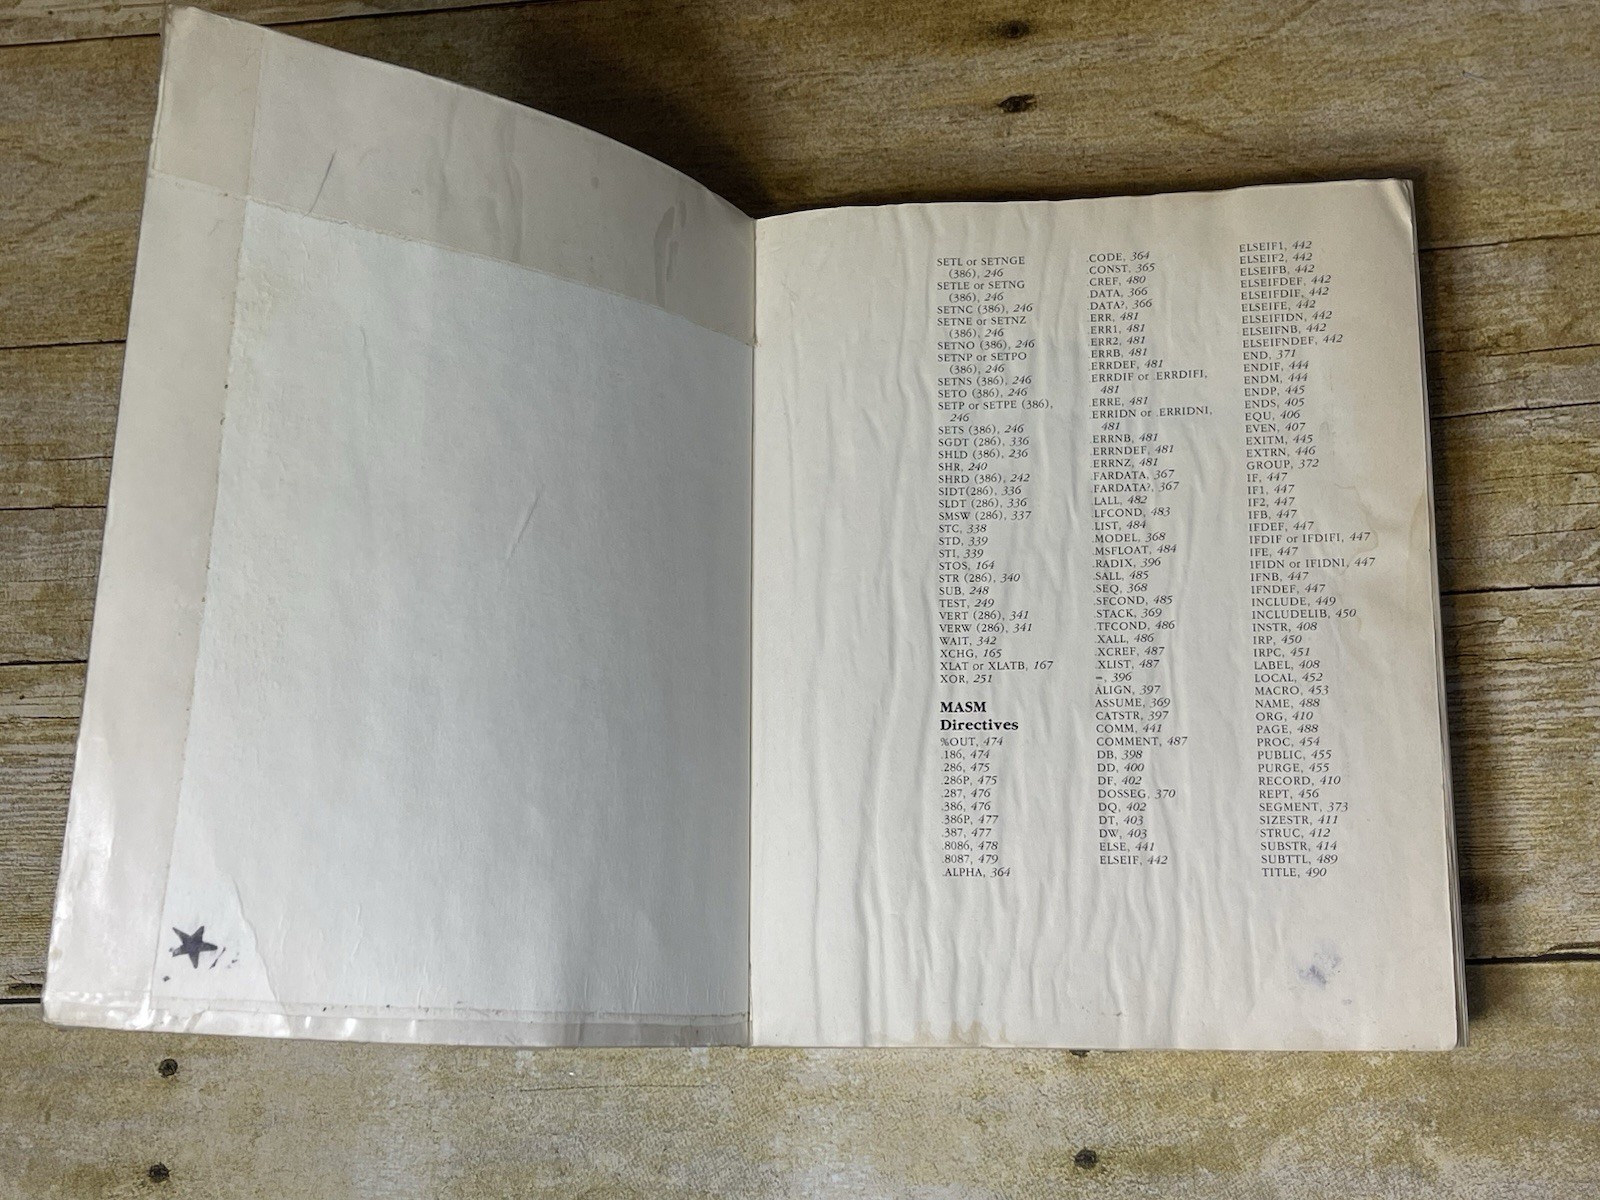 SETL or SETNGE
(386), 246
SETLE or SETNG
(386), 246
SETNC (386), 246
SETNE or SETNZ
(386), 246
SETNO (386), 246
SETNP or SETPO
(386), 246
SETNS (386), 246
SETO (386), 246
SETP or SETPE (386),
246
SETS (386), 246
SGDT (286), 336
SHLD (386), 236
SHR, 240
SHRD (386), 242
SIDT(286), 336
SLDT (286), 336
SMSW (286), 337
STC, 338
STD, 339
STI, 339
STOS, 164
STR (286), 340
SUB, 248
TEST, 249
VERT (286), 341
VERW (286), 341
WAIT, 342
XCHG, 165
XLAT or XLATB, 167
XOR, 251
MASM
Directives
%OUT, 474
.186, 474
.286, 475
.286P, 475
.287, 476
.386, 476
.386P, 477
.387, 477
.8086, 478
.8087, 479
.ALPHA, 364
.CODE, 364
.CONST, 365
.CREF, 480
.DATA, 366
.DATA?, 366
.ERR, 481
.ERR1, 481
.ERR2, 481
.ERRB, 481
.ERRDEF, 481
.ERRDIF or .ERRDIFI,
481
.ERRE, 481
.ERRIDN or .ERRIDNI,
481
.ERRNB, 481
.ERRNDEF, 481
.ERRNZ, 481
.FARDATA, 367
.FARDATA?, 367
.LALL, 482
.LFCOND, 483
.LIST, 484
.MODEL, 368
.MSFLOAT, 484
.RADIX, 396
.SALL, 485
.SEQ, 368
.SFCOND, 485
.STACK, 369
.TFCOND, 486
.XALL, 486
.XCREF, 487
.XLIST, 487
=, 396
ALIGN, 397
ASSUME, 369
CATSTR, 397
COMM, 441
COMMENT, 487
DB, 398
DD, 400
DF, 402
DOSSEG, 370
DQ, 402
DT, 403
DW, 403
ELSE, 441
ELSEIF, 442
ELSEIF1, 442
ELSEIF2, 442
ELSEIFB, 442
ELSEIFDEF, 442
ELSEIFDIF, 442
ELSEIFE, 442
ELSEIFIDN, 442
ELSEIFNB, 442
ELSEIFNDEF, 442
END, 371
ENDIF, 444
ENDM, 444
ENDP, 445
ENDS, 405
EQU, 406
EVEN, 407
EXITM, 445
EXTRN, 446
GROUP, 372
IF, 447
IF1, 447
IF2, 447
IFB, 447
IFDEF, 447
IFDIF or IFDIFI, 447
IFE, 447
IFIDN or IFIDNI, 447
IFNB, 447
IFNDEF, 447
INCLUDE, 449
INCLUDELIB, 450
INSTR, 408
IRP, 450
IRPC, 451
LABEL, 408
LOCAL, 452
MACRO, 453
NAME, 488
ORG, 410
PAGE, 488
PROC, 454
PUBLIC, 455
PURGE, 455
RECORD, 410
REPT, 456
SEGMENT, 373
SIZESTR, 411
STRUC, 412
SUBSTR, 414
SUBTTL, 489
TITLE, 490